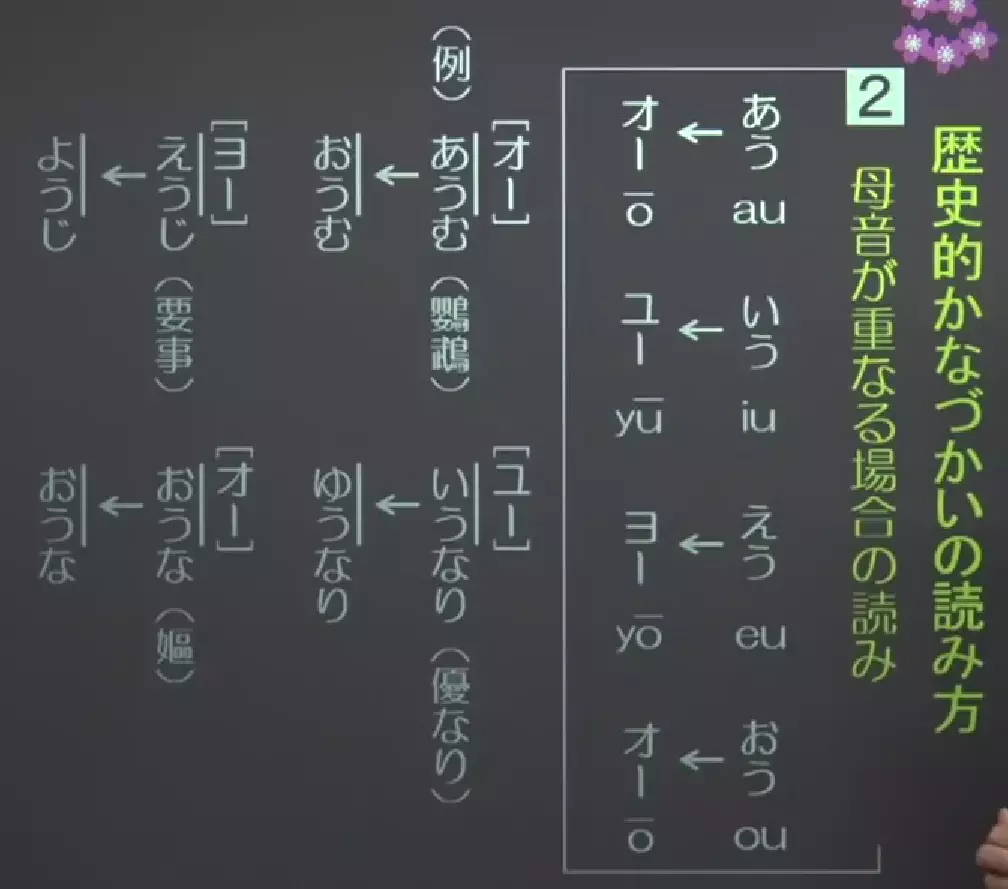 歴史的かなづかいの読み方
2 母音が重なる場合の読み
あう au
←
オー ō
いう iu
←
ユー yū
えう eu
←
ヨー yō
おう ou
←
オー ō
(例)
[オー]
あうむ(鸚鵡)
←
おうむ
[ユー]
いうなり(優なり)
←
ゆうなり
[ヨー]
えうじ(要事)
←
ようじ
[オー]
おうな(嫗)
←
おうな